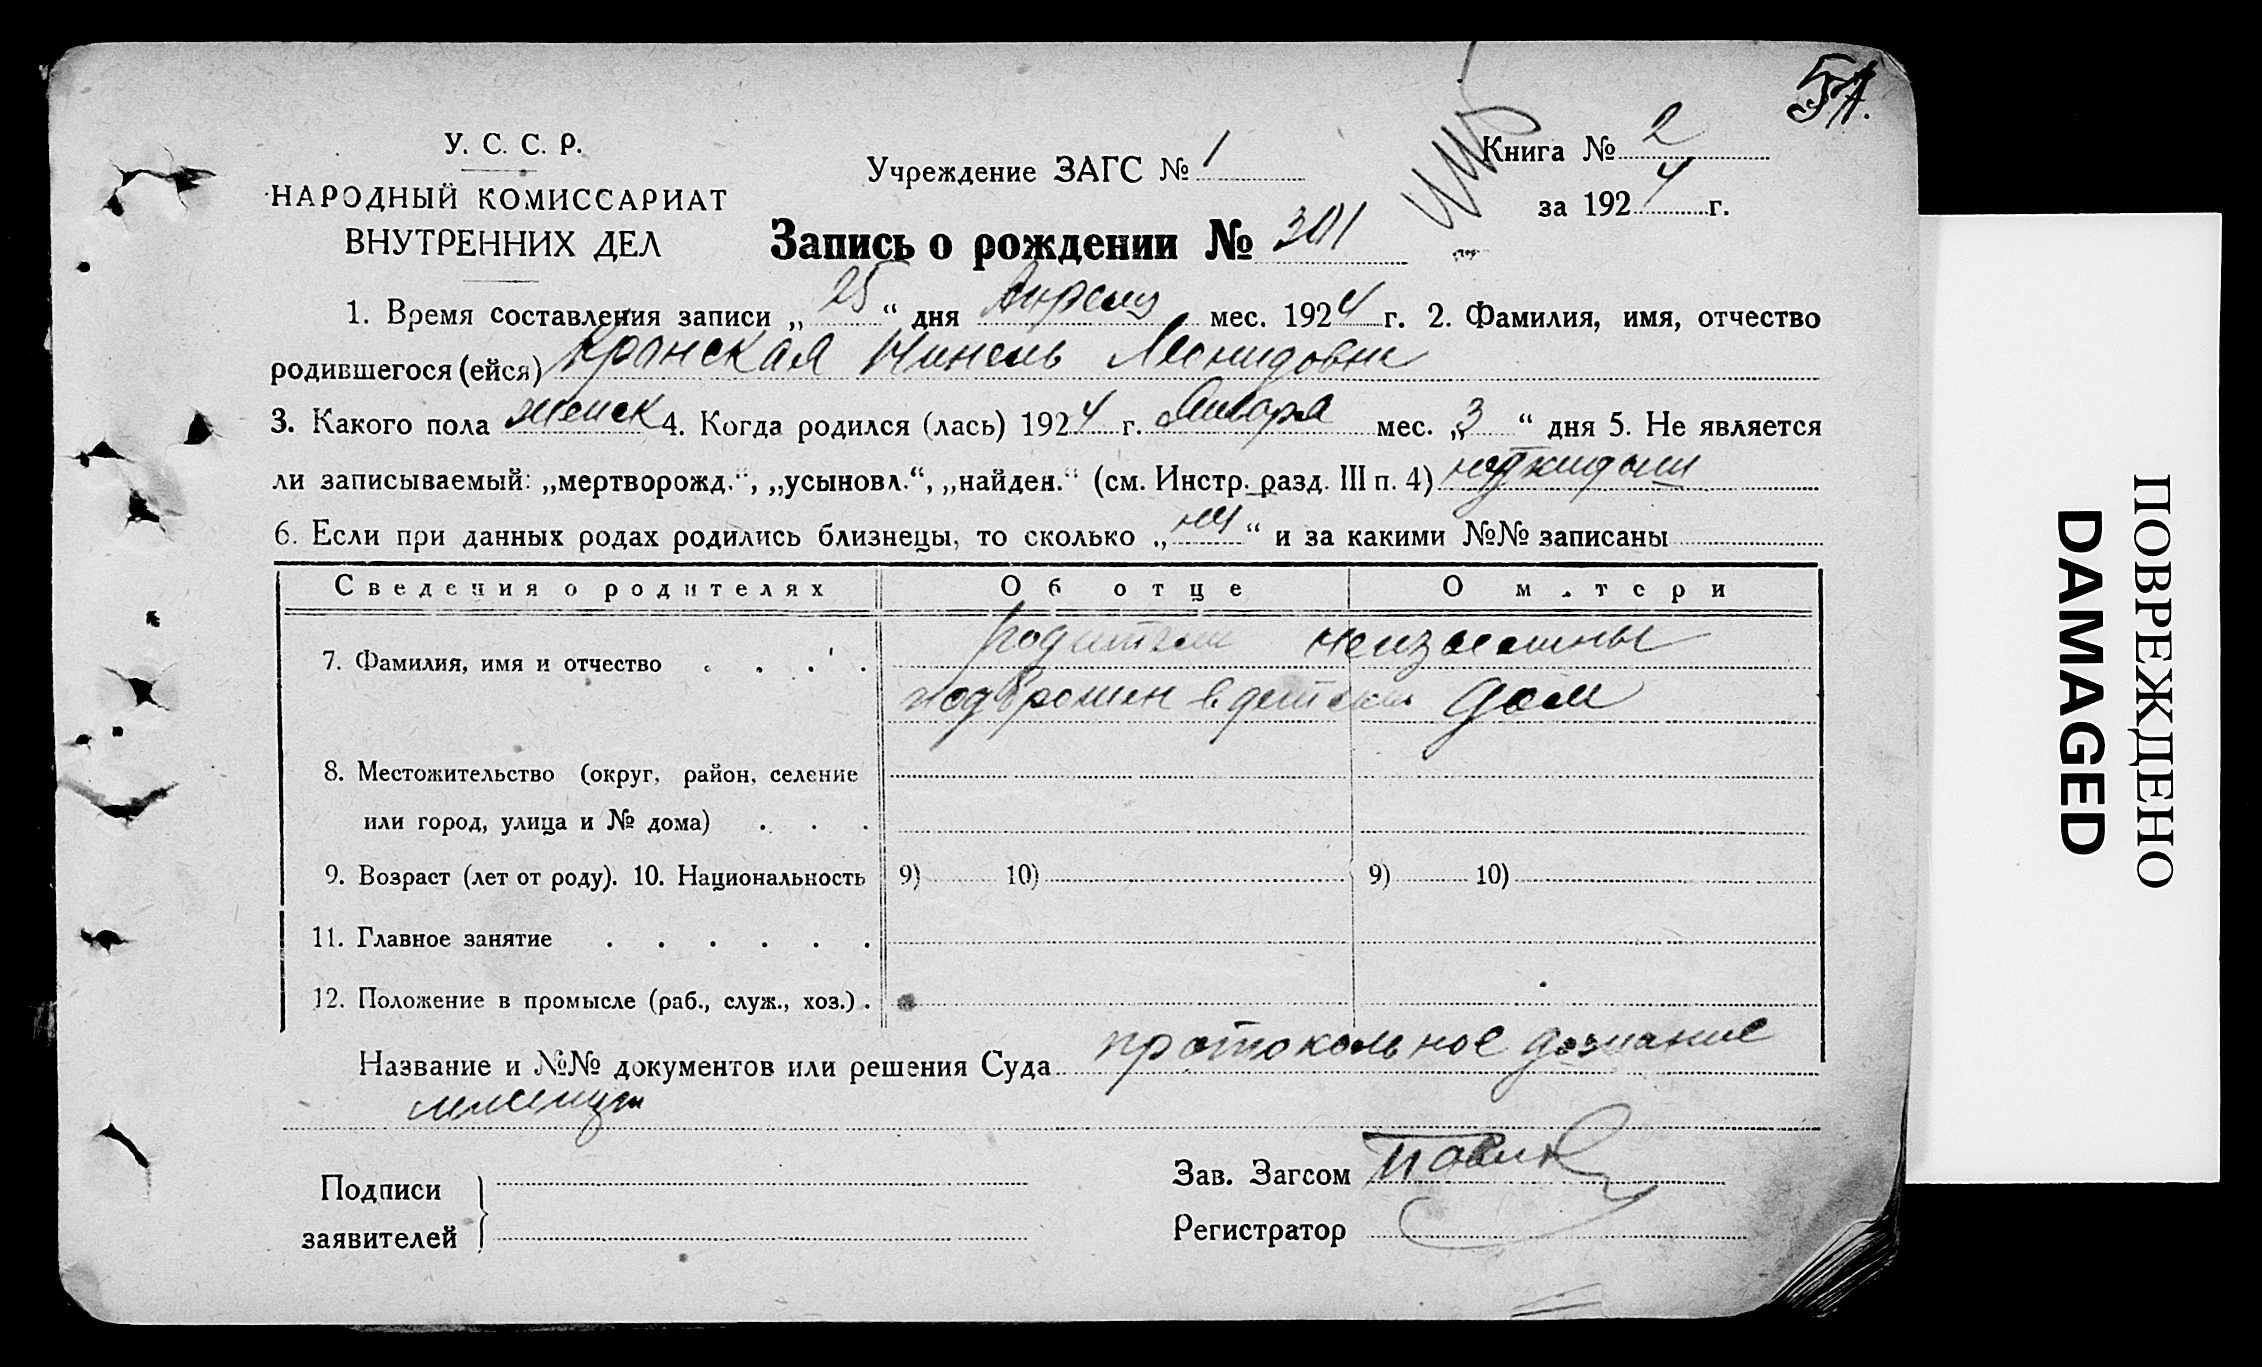 5А.
У. С. С. Р.
НАРОДНЫЙ КОМИССАРИАТ
ВНУТРЕННИХ ДЕЛ
Учреждение ЗАГС № 1
Книга № 2
за 1924 г.
Запись о рождении № 301
1. Время составления записи „25“ дня Апреля мес. 1924 г. 2. Фамилия, имя, отчество
родившегося (ейся) Кранская Нинель Леонидовна
3. Какого пола женск 4. Когда родился (лась) 1924 г. Января мес. „3“ дня 5. Не является
ли записываемый: „мертворожд.“, „усыновл.“, „найден.“ (см. Инстр. разд. III п. 4) подкидыш
6. Если при данных родах родились близнецы, то сколько „нет“ и за какими №№ записаны
Сведения о родителях Об отце О м.тери
7. Фамилия, имя и отчество . . . . родители неизвестны
подброшен в детский дом
8. Местожительство (округ, район, селение
или город, улица и № дома) . . .
9. Возраст (лет от роду). 10. Национальность 9) 10) 9) 10)
11. Главное занятие . . . . . .
12. Положение в промысле (раб., служ., хоз.) .
Название и №№ документов или решения Суда протокольное дознание
милиции
Подписи
заявителей
Зав. Загсом
Регистратор
ПОВРЕЖДЕНО
DAMAGED